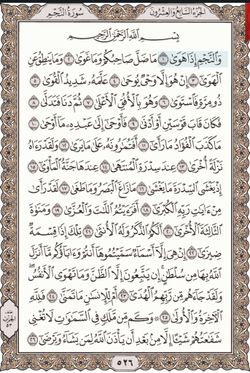 الجزء السابع والعشرون سورة النجم
بِسْمِ ٱللَّهِ ٱلرَّحْمَٰنِ ٱلرَّحِيمِ
وَٱلنَّجْمِ إِذَا هَوَىٰ ١ مَا ضَلَّ صَاحِبُكُمْ وَمَا غَوَىٰ ٢ وَمَا يَنطِقُ عَنِ
ٱلْهَوَىٰٓ ٣ إِنْ هُوَ إِلَّا وَحْىٌ يُوحَىٰ ٤ عَلَّمَهُۥ شَدِيدُ ٱلْقُوَىٰ ٥
ذُو مِرَّةٍ فَٱسْتَوَىٰ ٦ وَهُوَ بِٱلْأُفُقِ ٱلْأَعْلَىٰ ٧ ثُمَّ دَنَا فَتَدَلَّىٰ ٨
فَكَانَ قَابَ قَوْسَيْنِ أَوْ أَدْنَىٰ ٩ فَأَوْحَىٰٓ إِلَىٰ عَبْدِهِۦ مَآ أَوْحَىٰ ١٠ مَا
كَذَبَ ٱلْفُؤَادُ مَا رَأَىٰٓ ١١ أَفَتُمَٰرُونَهُۥ عَلَىٰ مَا يَرَىٰ ١٢ وَلَقَدْ رَءَاهُ
نَزْلَةً أُخْرَىٰ ١٣ عِندَ سِدْرَةِ ٱلْمُنتَهَىٰ ١٤ عِندَهَا جَنَّةُ ٱلْمَأْوَىٰٓ ١٥
إِذْ يَغْشَى ٱلسِّدْرَةَ مَا يَغْشَىٰ ١٦ مَا زَاغَ ٱلْبَصَرُ وَمَا طَغَىٰ ١٧ لَقَدْ رَأَىٰ
مِنْ ءَايَٰتِ رَبِّهِ ٱلْكُبْرَىٰٓ ١٨ أَفَرَءَيْتُمُ ٱللَّٰتَ وَٱلْعُزَّىٰ ١٩ وَمَنَوٰةَ
ٱلثَّالِثَةَ ٱلْأُخْرَىٰٓ ٢٠ أَلَكُمُ ٱلذَّكَرُ وَلَهُ ٱلْأُنثَىٰ ٢١ تِلْكَ إِذًا قِسْمَةٌ
ضِيزَىٰٓ ٢٢ إِنْ هِىَ إِلَّآ أَسْمَآءٌ سَمَّيْتُمُوهَآ أَنتُمْ وَءَابَآؤُكُم مَّآ أَنزَلَ
ٱللَّهُ بِهَا مِن سُلْطَٰنٍ إِن يَتَّبِعُونَ إِلَّا ٱلظَّنَّ وَمَا تَهْوَى ٱلْأَنفُسُ
وَلَقَدْ جَآءَهُم مِّن رَّبِّهِمُ ٱلْهُدَىٰٓ ٢٣ أَمْ لِلْإِنسَٰنِ مَا تَمَنَّىٰ ٢٤ فَلِلَّهِ
ٱلْءَاخِرَةُ وَٱلْأُولَىٰ ٢٥ وَكَم مِّن مَّلَكٍ فِى ٱلسَّمَٰوَٰتِ لَا تُغْنِى
شَفَٰعَتُهُمْ شَيْـًٔا إِلَّا مِنۢ بَعْدِ أَن يَأْذَنَ ٱللَّهُ لِمَن يَشَآءُ وَيَرْضَىٰٓ ٢٦
٥٢٦